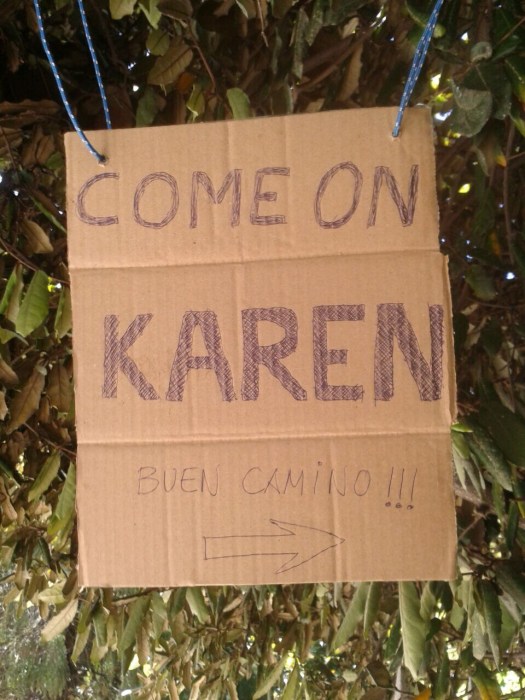 COME ON
KAREN
BUEN CAMINO!!!